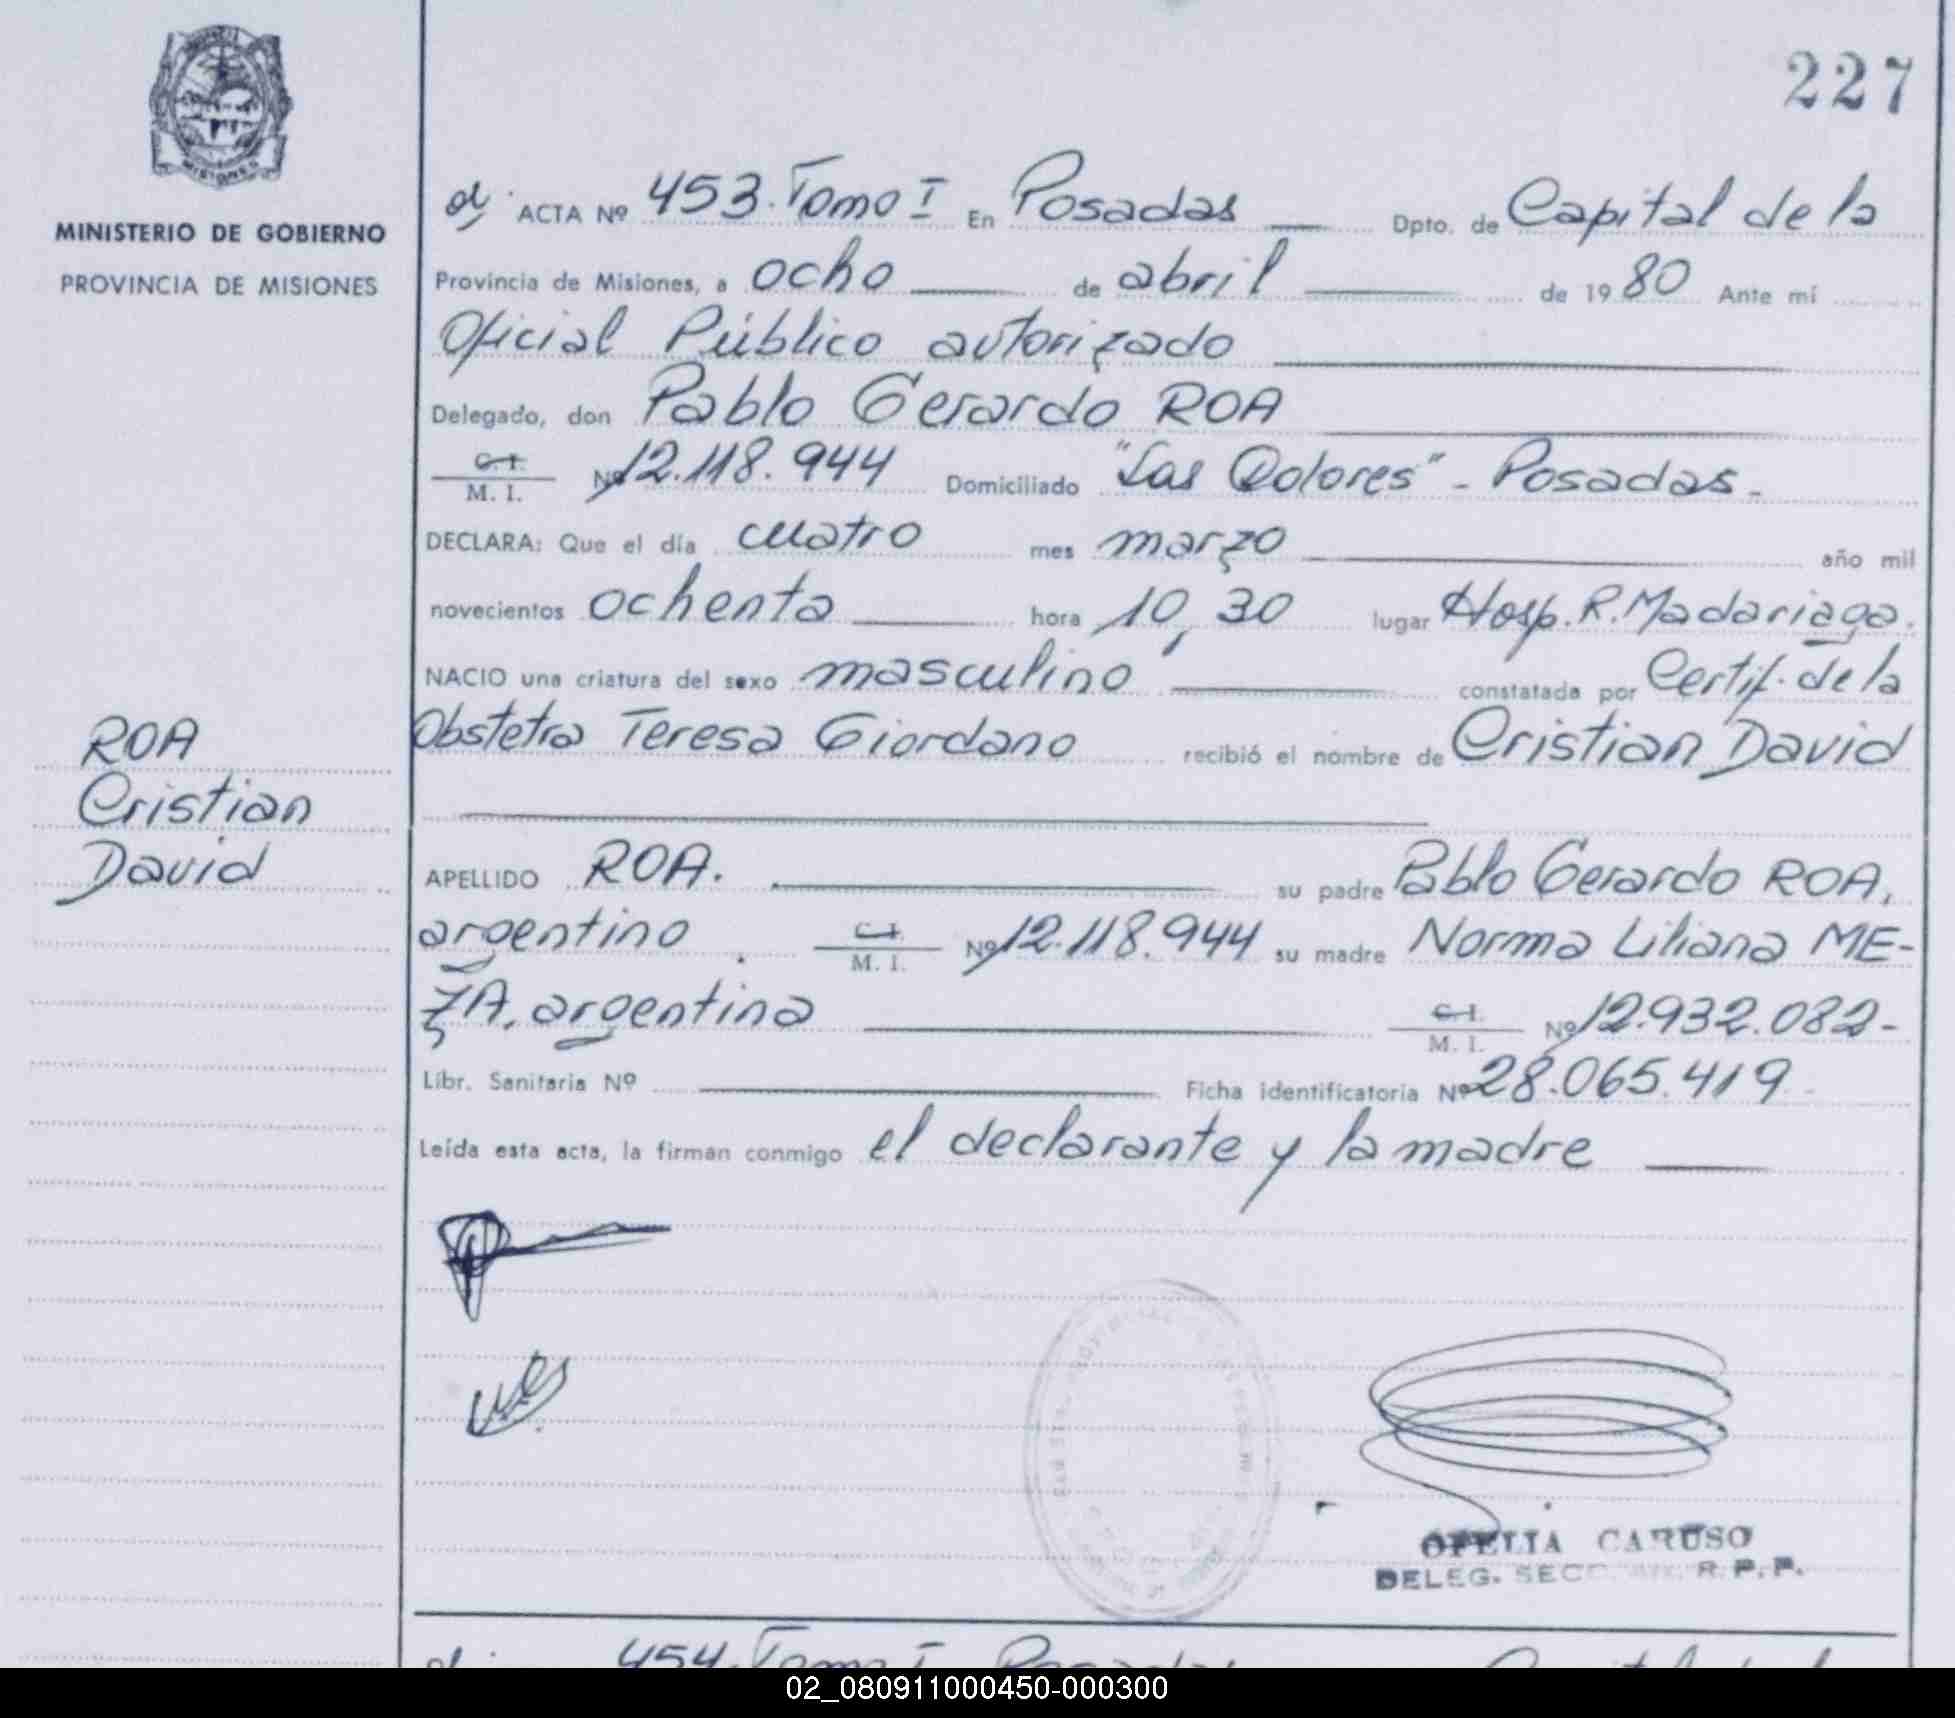 227
MINISTERIO DE GOBIERNO
PROVINCIA DE MISIONES
ACTA Nº 453. Tomo I En Posadas Dpto. de Capital de la
Provincia de Misiones, a ocho de abril de 1980 Ante mí
Oficial Público autorizado
Delegado, don Pablo Gerardo ROA
C. I.
M. I. Nº 12.118.944 Domiciliado "Las Dolores" - Posadas -
DECLARA: Que el día cuatro mes marzo año mil
novecientos ochenta hora 10,30 lugar Hosp. R. Madariaga.
NACIO una criatura del sexo masculino constatada por Certif. de la
Obstetra Teresa Giordano recibió el nombre de Cristian David
ROA
Cristian
David
APELLIDO ROA. su padre Pablo Gerardo ROA,
argentino. C. I. M. I. Nº 12.118.944 su madre Norma Liliana ME-
ZA, argentina C. I. M. I. Nº 12.932.082-
Libr. Sanitaria Nº Ficha identificatoria Nº 28.065.419-
Leída esta acta, la firman conmigo el declarante y la madre
OFELIA CARUSO
DELEG. R. P. P.
454. Tomo I Posadas
02_080911000450-000300